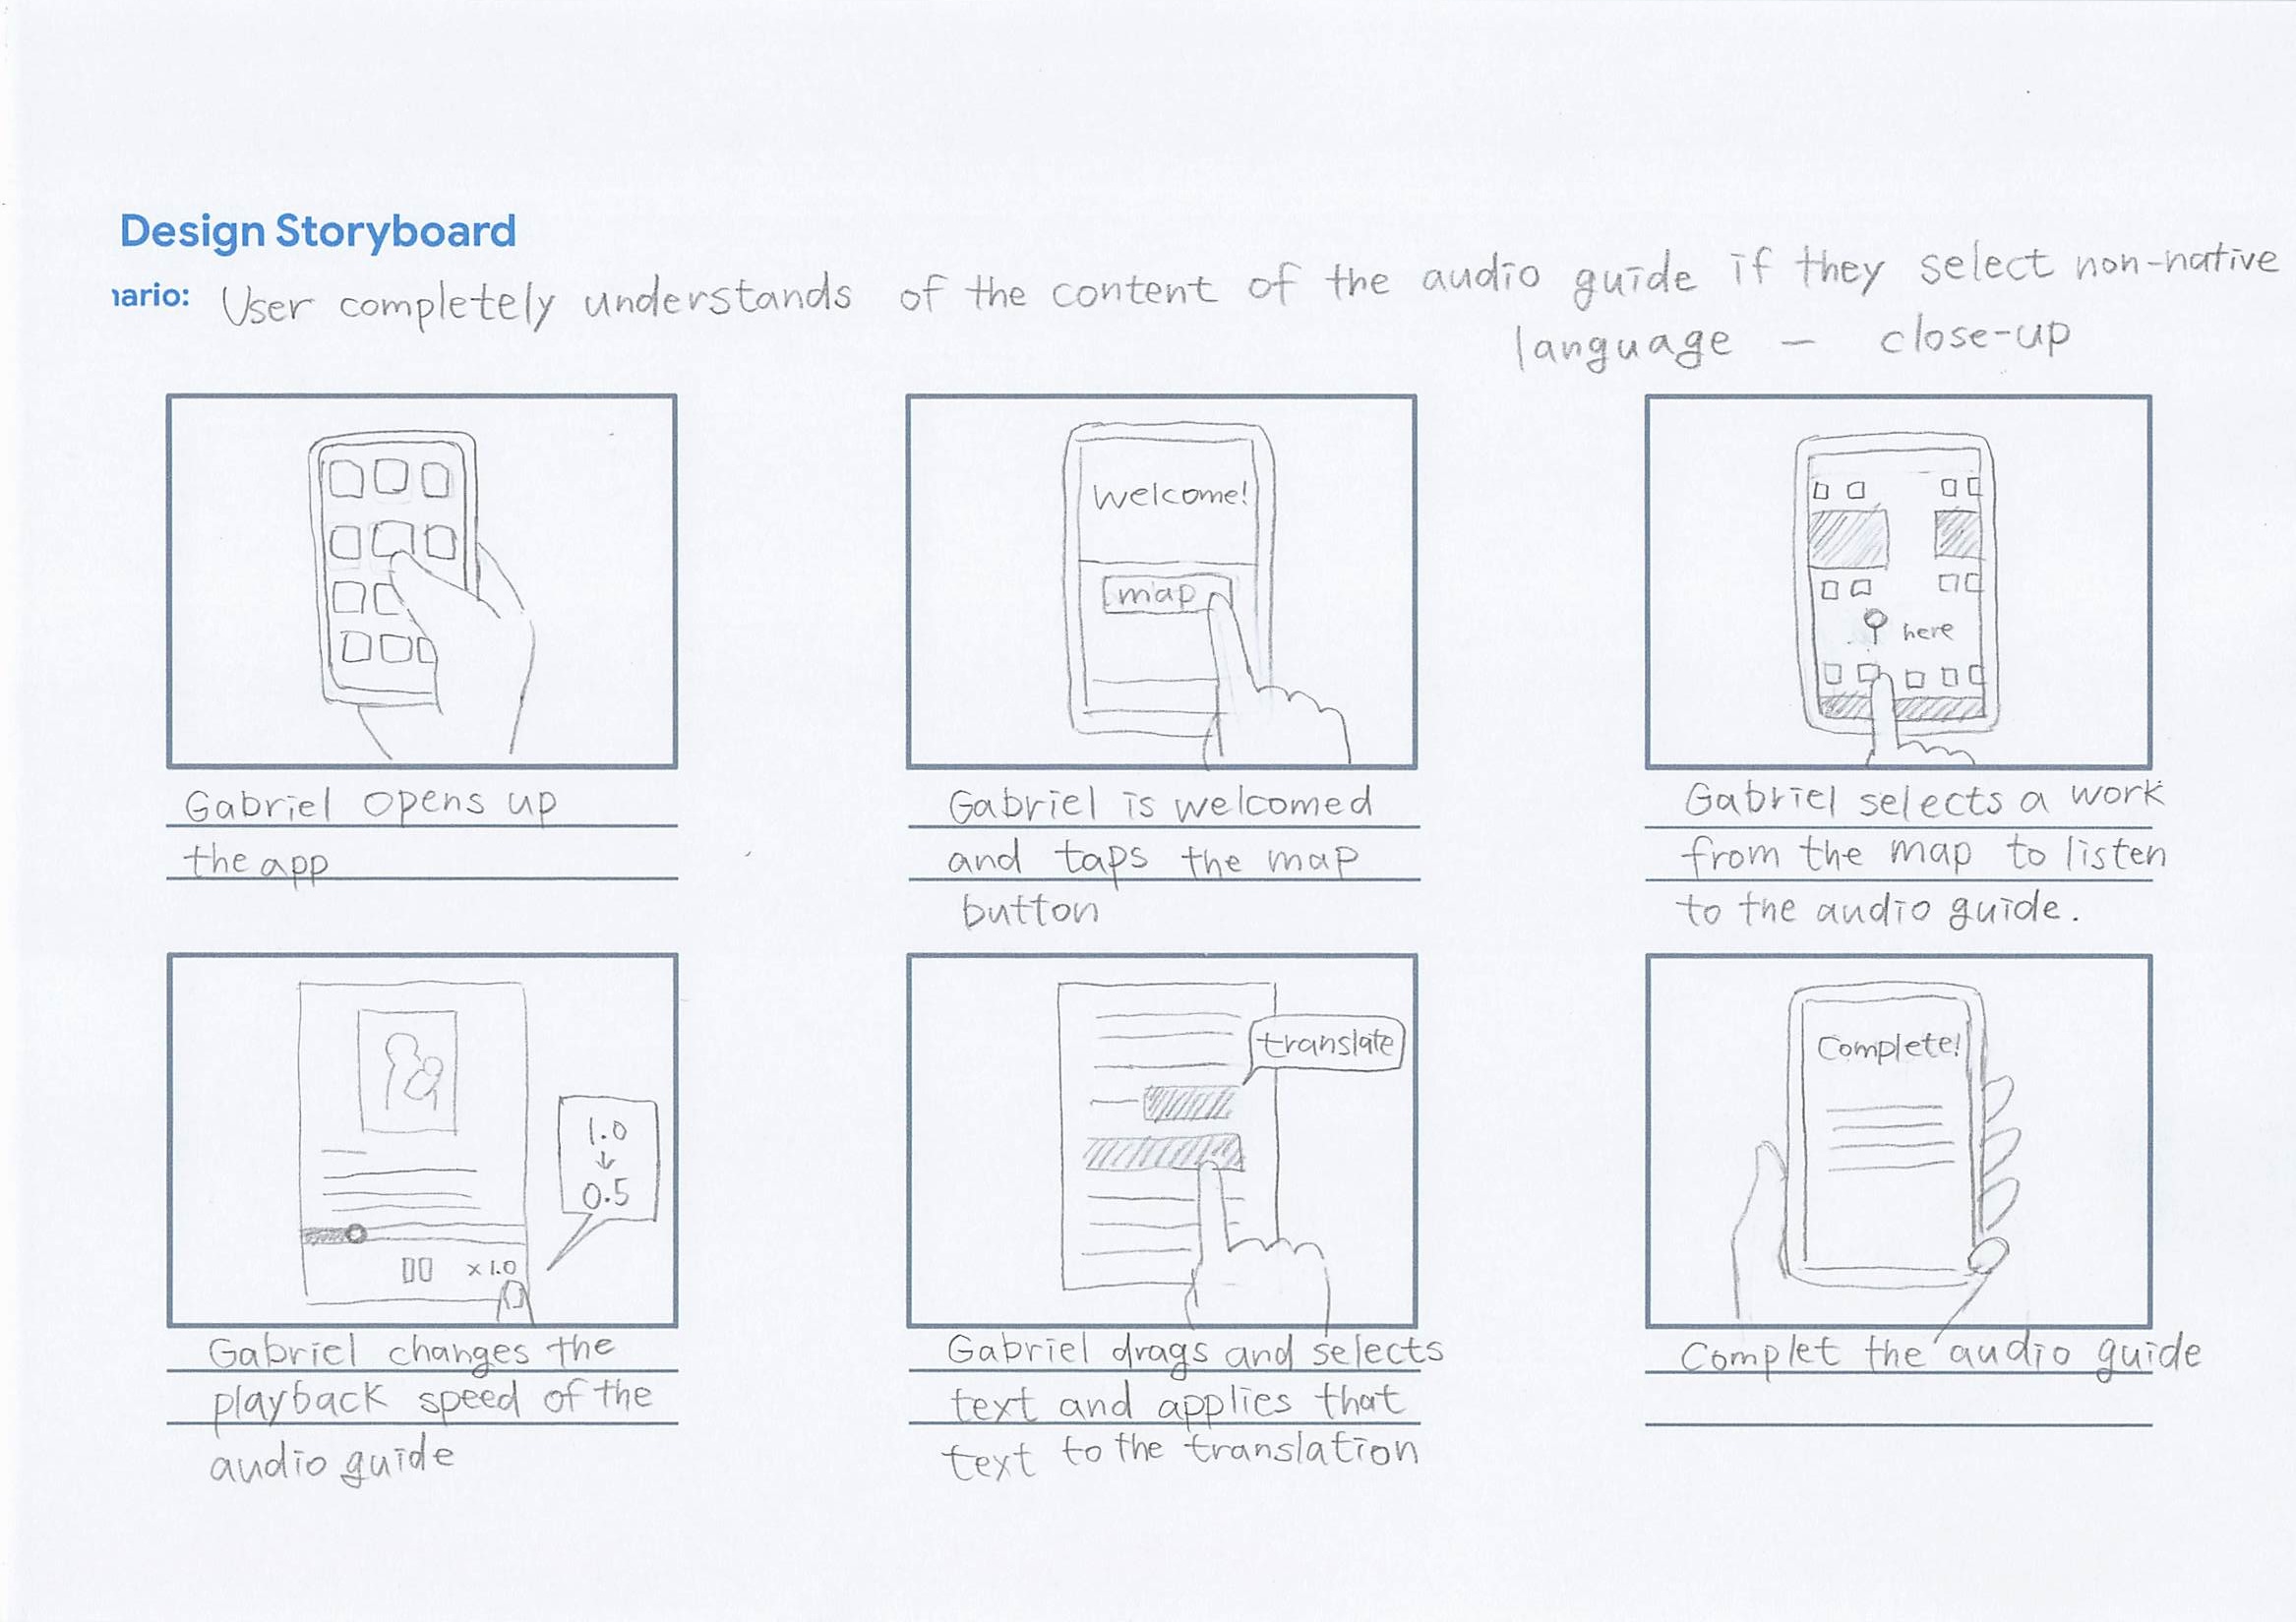 Design Storyboard
nario: User completely understands of the content of the audio guide if they select non-native
language — close-up
welcome!
map
here
Gabriel opens up
the app
Gabriel is welcomed
and taps the map
button
Gabriel selects a work
from the map to listen
to the audio guide.
1.0
↓
0.5
x 1.0
translate
Complete!
Gabriel changes the
playback speed of the
audio guide
Gabriel drags and selects
text and applies that
text to the translation
Complet the audio guide